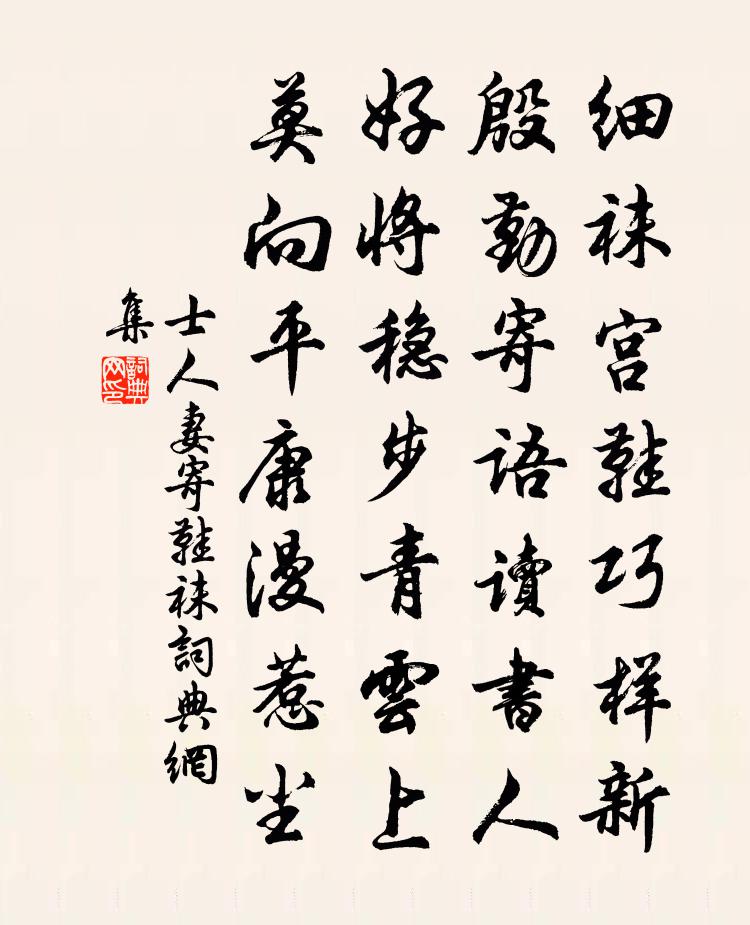 细袜宫鞋巧样新
殷勤寄语讀書人
好将穏步青雲上
莫向平康漫惹尘
士人妻寄鞋袜詞典網
集
詞典网印